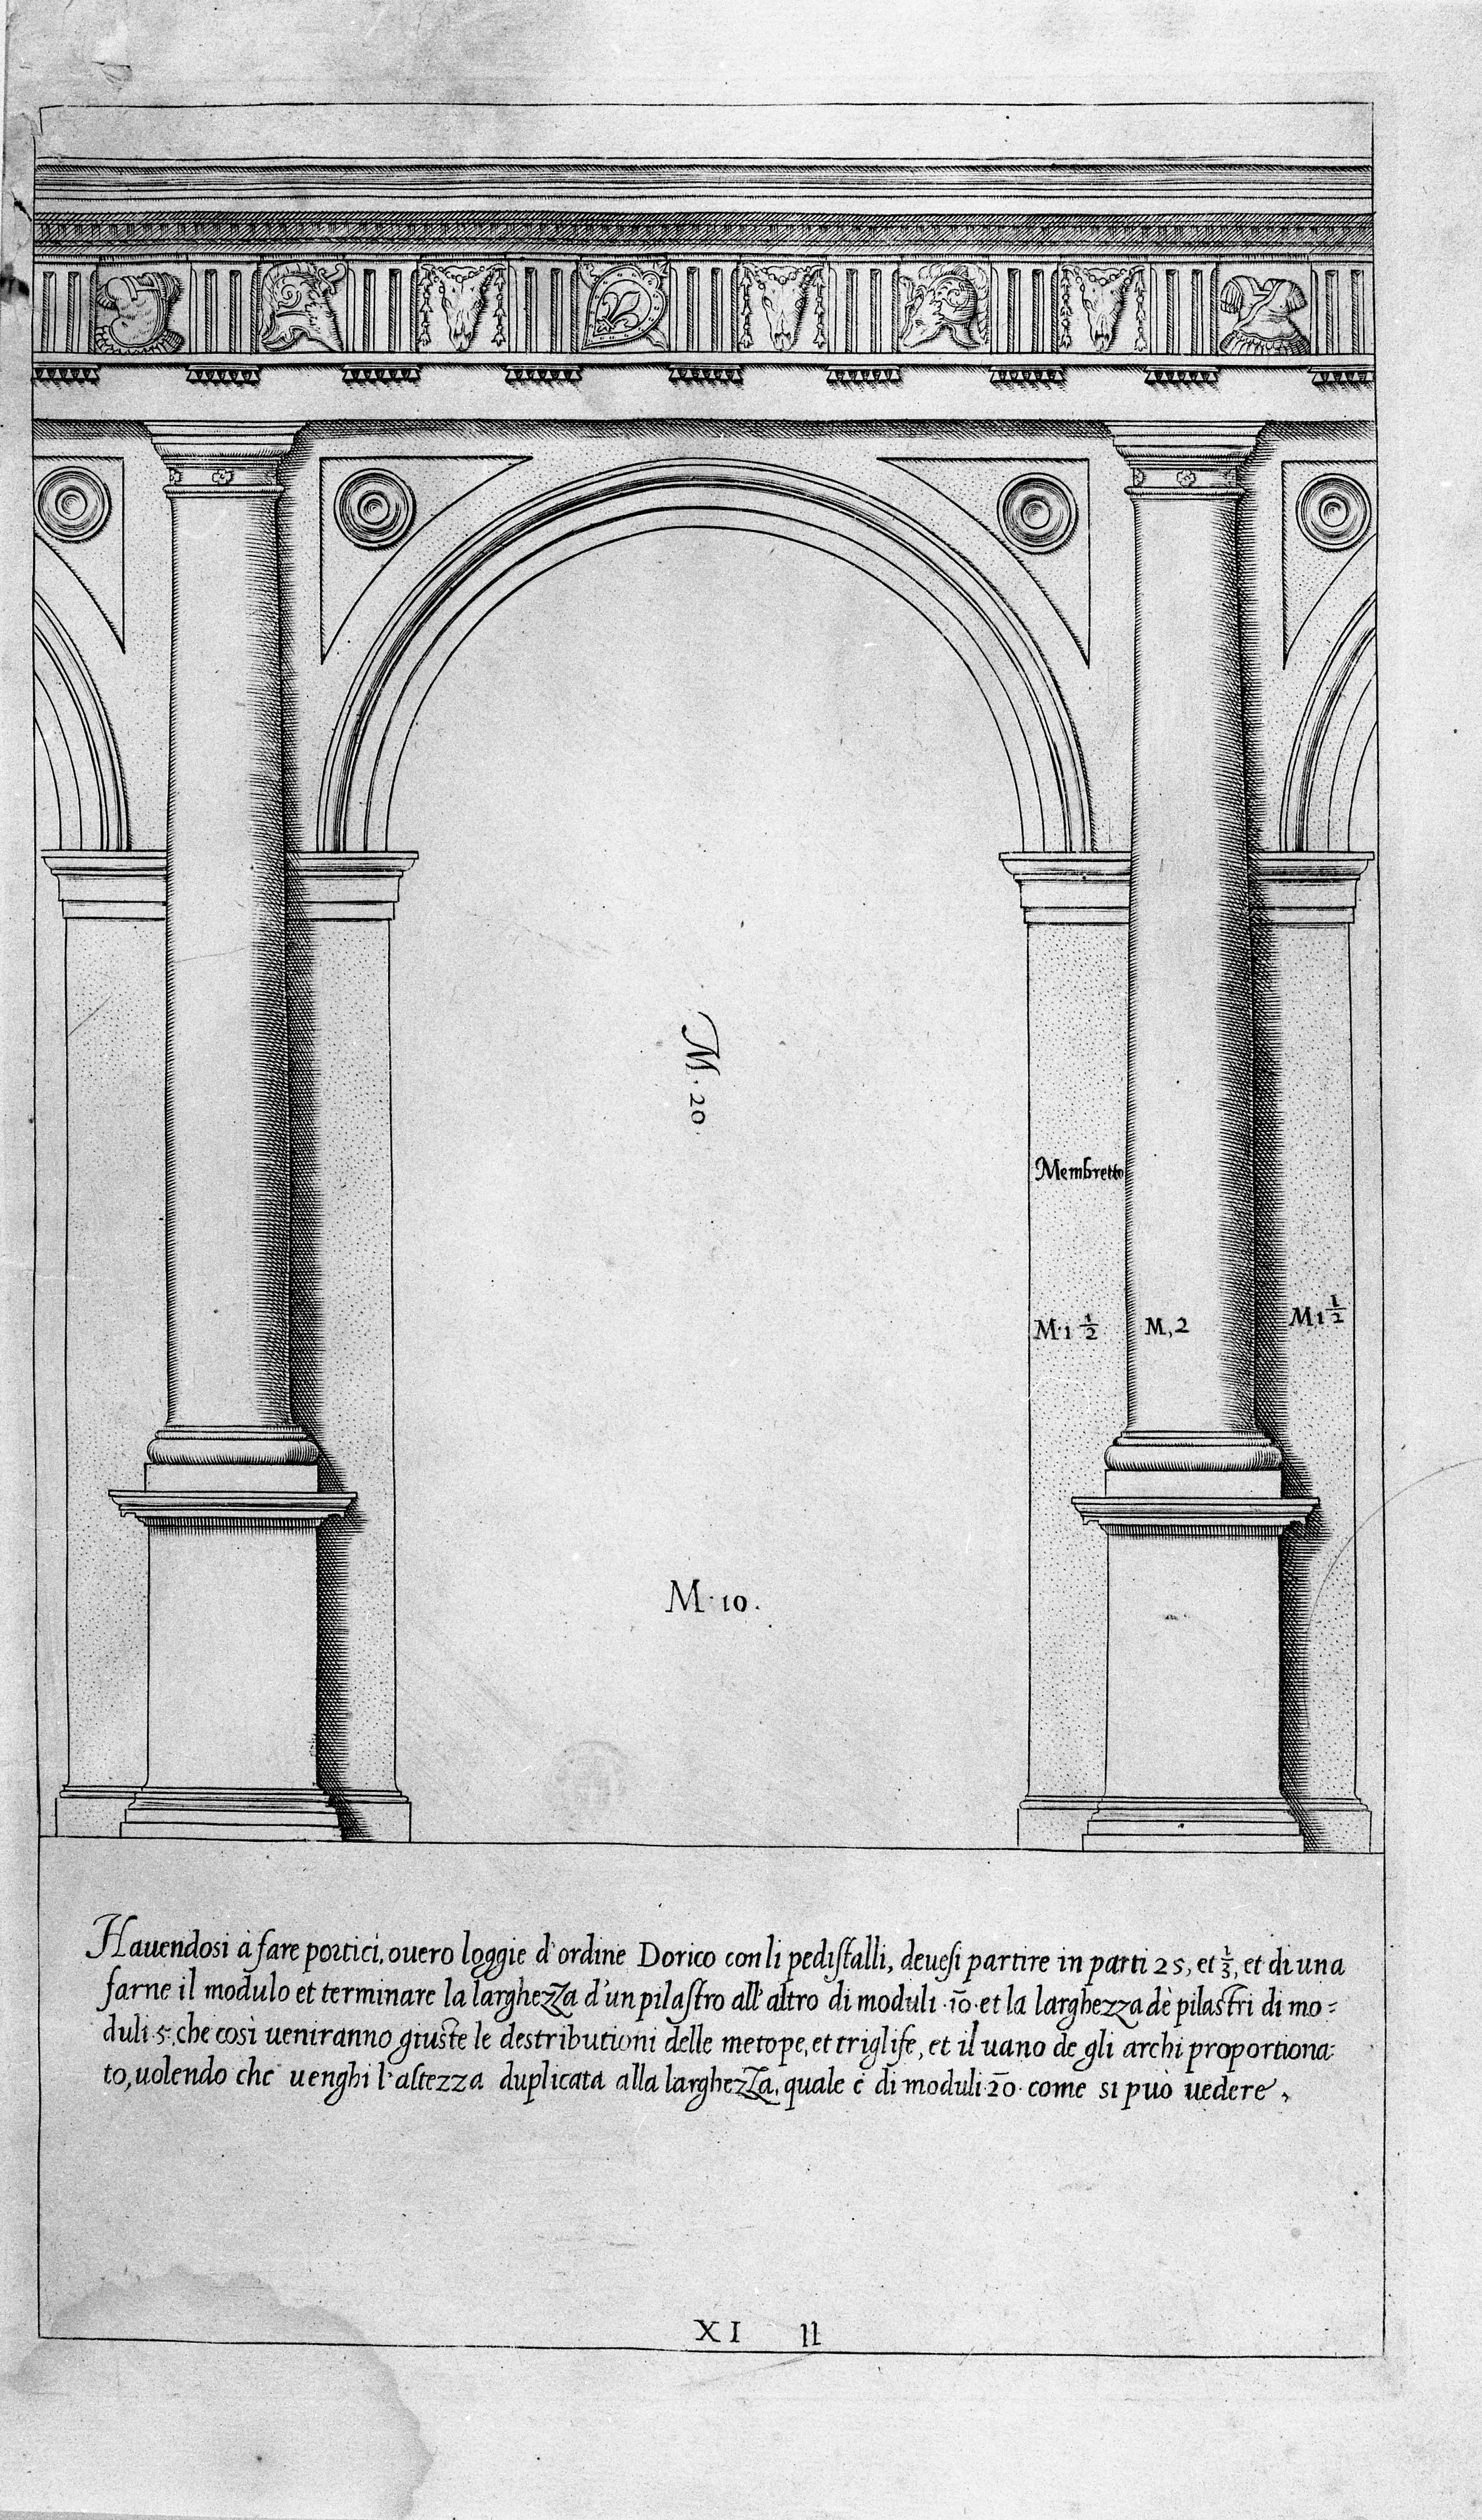 M. 20.
Membretto
M. 1 1/2
M, 2
M 1 1/2
M. 10.
Hauendosi à fare portici, ouero loggie d'ordine Dorico con li pediſtalli, deueſi partire in parti 25, et 1/3, et di una
farne il modulo et terminare la larghezza d'un pilaſtro all'altro di moduli .10. et la larghezza dè pilaſtri di mo=
duli .5. che così ueniranno giuſte le deſtributioni delle metope, et triglife, et il uano de gli archi proportiona=
to, uolendo che uenghi l'altezza duplicata alla larghezza, quale è di moduli .20. come si può uedere.
XI 11